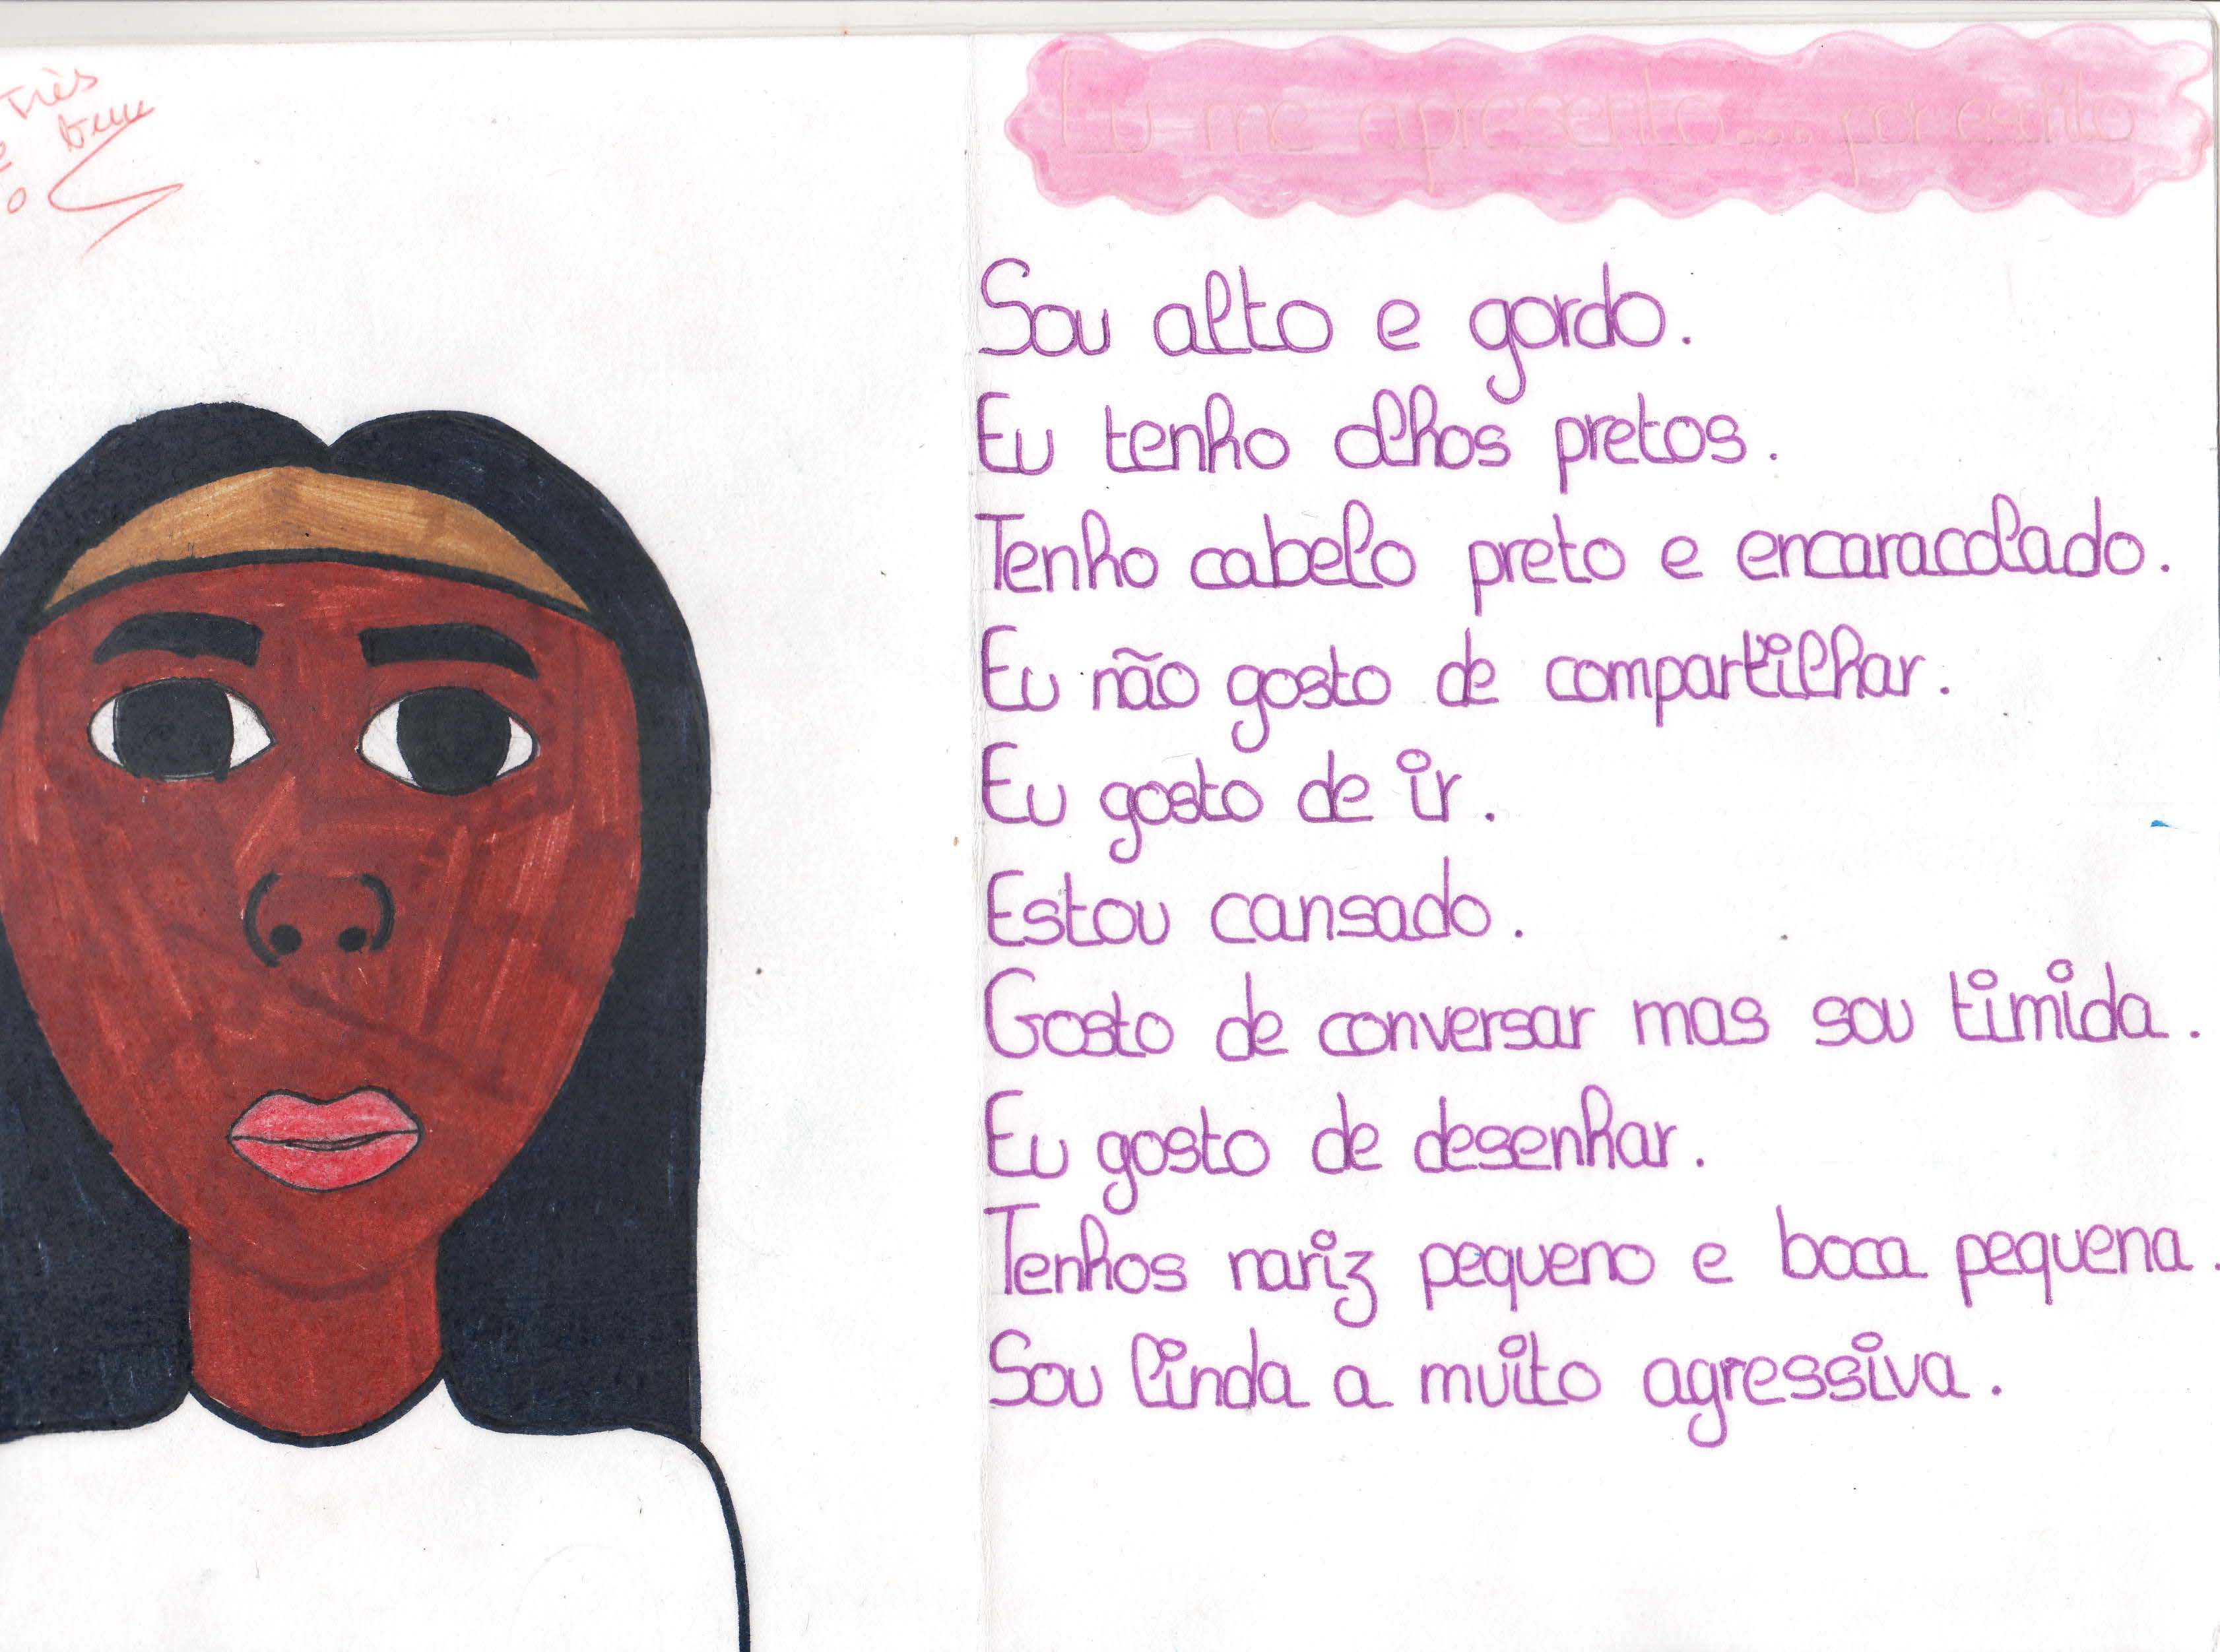 Très
bien
Eu me apresento... por escrito
Sou alto e gordo.
Eu tenho olhos pretos.
Tenho cabelo preto e encaracolado.
Eu não gosto de compartilhar.
Eu gosto de ir.
Estou cansado.
Gosto de conversar mas sou timida.
Eu gosto de desenhar.
Tenhos nariz pequeno e boca pequena.
Sou linda a muito agressiva.